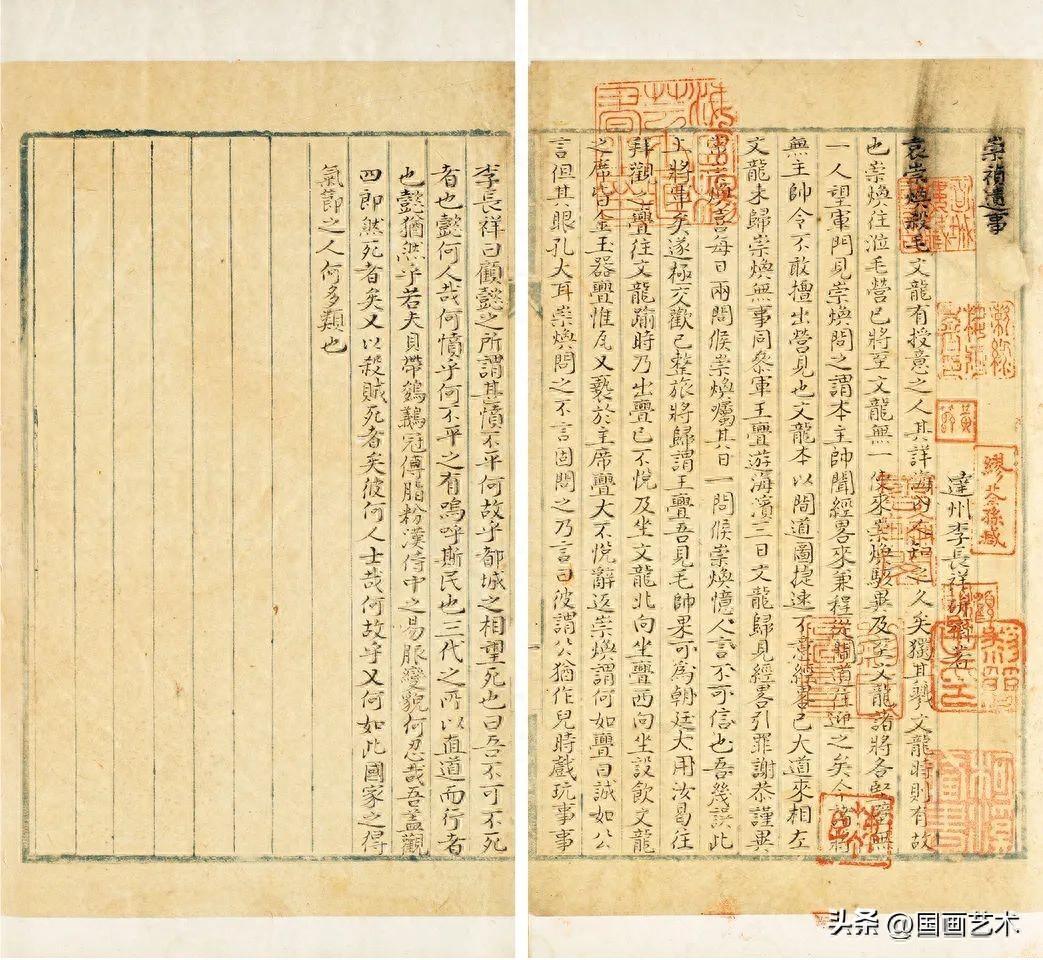 崇禎遺事
達州李長祥研齋著
袁崇煥殺毛文龍有授意之人其詳海內不知之久矣獨其戮文龍時則有故
也崇煥往涖毛營已將至文龍無一使來崇煥駭異及至文龍諸將各堅壁無
一人望軍門見崇煥問之謂本主帥聞經畧來兼程從間道往迎之矣今營
無主帥令不敢擅出營見也文龍本以間道圖捷速不意經畧已大道來相左
文龍未歸崇煥無事同參軍王亹遊海濱三日文龍歸見經畧引罪謝恭謹異
常崇煥喜每日兩問候崇煥囑其日一問候崇煥憶人言不可信也吾幾誤此
上將軍矣遂極交歡已整旅將歸謂王亹吾見毛帥果可為朝廷大用汝曷往
拜觀之亹往文龍踰時乃出亹已不悅及坐文龍北向坐亹西向坐設飲文龍
之席皆金玉器亹惟瓦又褻於主席亹大不悅辭返崇煥謂何如亹曰誠如公
言但其眼孔大耳崇煥問之不言固問之乃言曰彼謂公猶作兒時戲玩事事
李長祥曰顧懿之所謂甚憤不平何故乎都城之相望死也曰吾不可不死
者也懿何人哉何憤乎何不平之有嗚呼斯民也三代之所以直道而行者
也懿猶然乎若夫貝帶鵕鸃冠傅脂粉漢侍中之易服變貌何忍哉吾蓋觀
四郎然死者矣又以殺賊死者矣彼何人士哉何故乎又何如此國家之得
氣節之人何多類也
繆荃孫藏
头条 @国画艺术